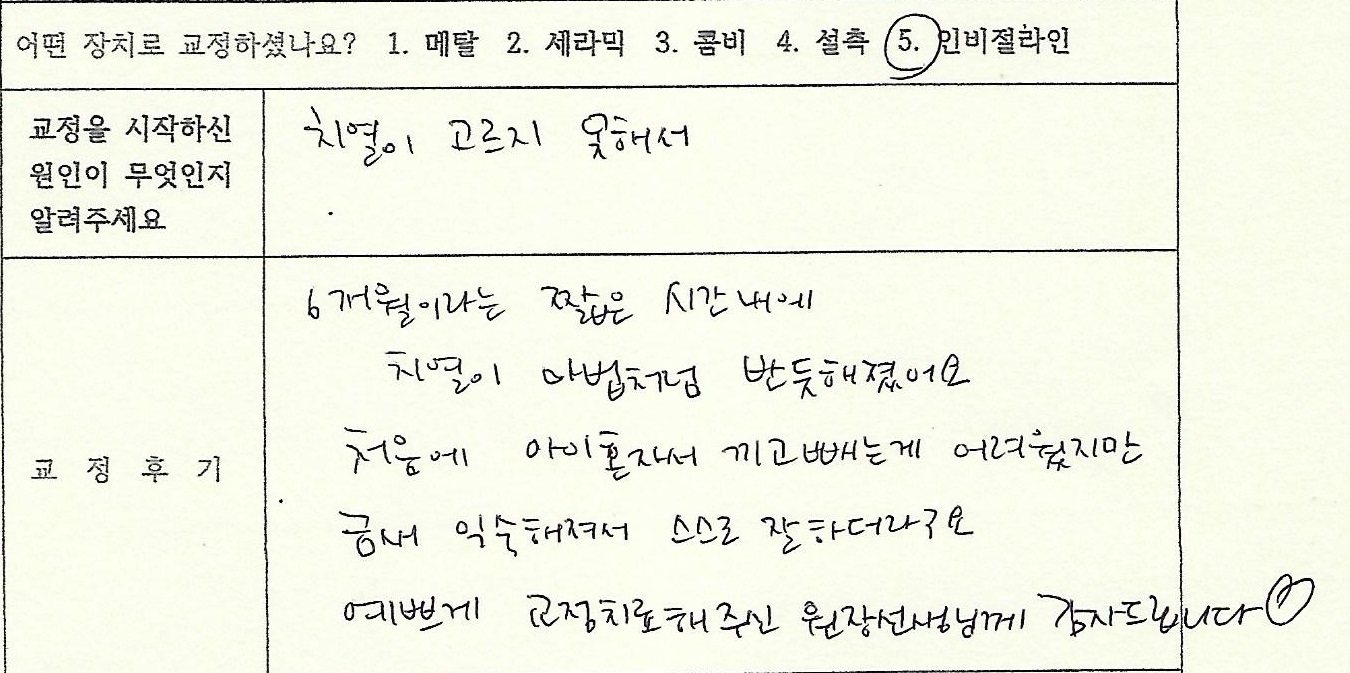 어떤 장치로 교정하셨나요? 1. 메탈 2. 세라믹 3. 콤비 4. 설측 5. 인비절라인
교정을 시작하신
원인이 무엇인지
알려주세요
치열이 고르지 못해서
교 정 후 기
6개월이라는 짧은 시간내에
치열이 마법처럼 반듯해졌어요
처음에 아이혼자서 끼고빼는게 어려웠지만
금새 익숙해져서 스스로 잘하더라구요
예쁘게 교정치료해주신 원장선생님께 감사드립니다♡